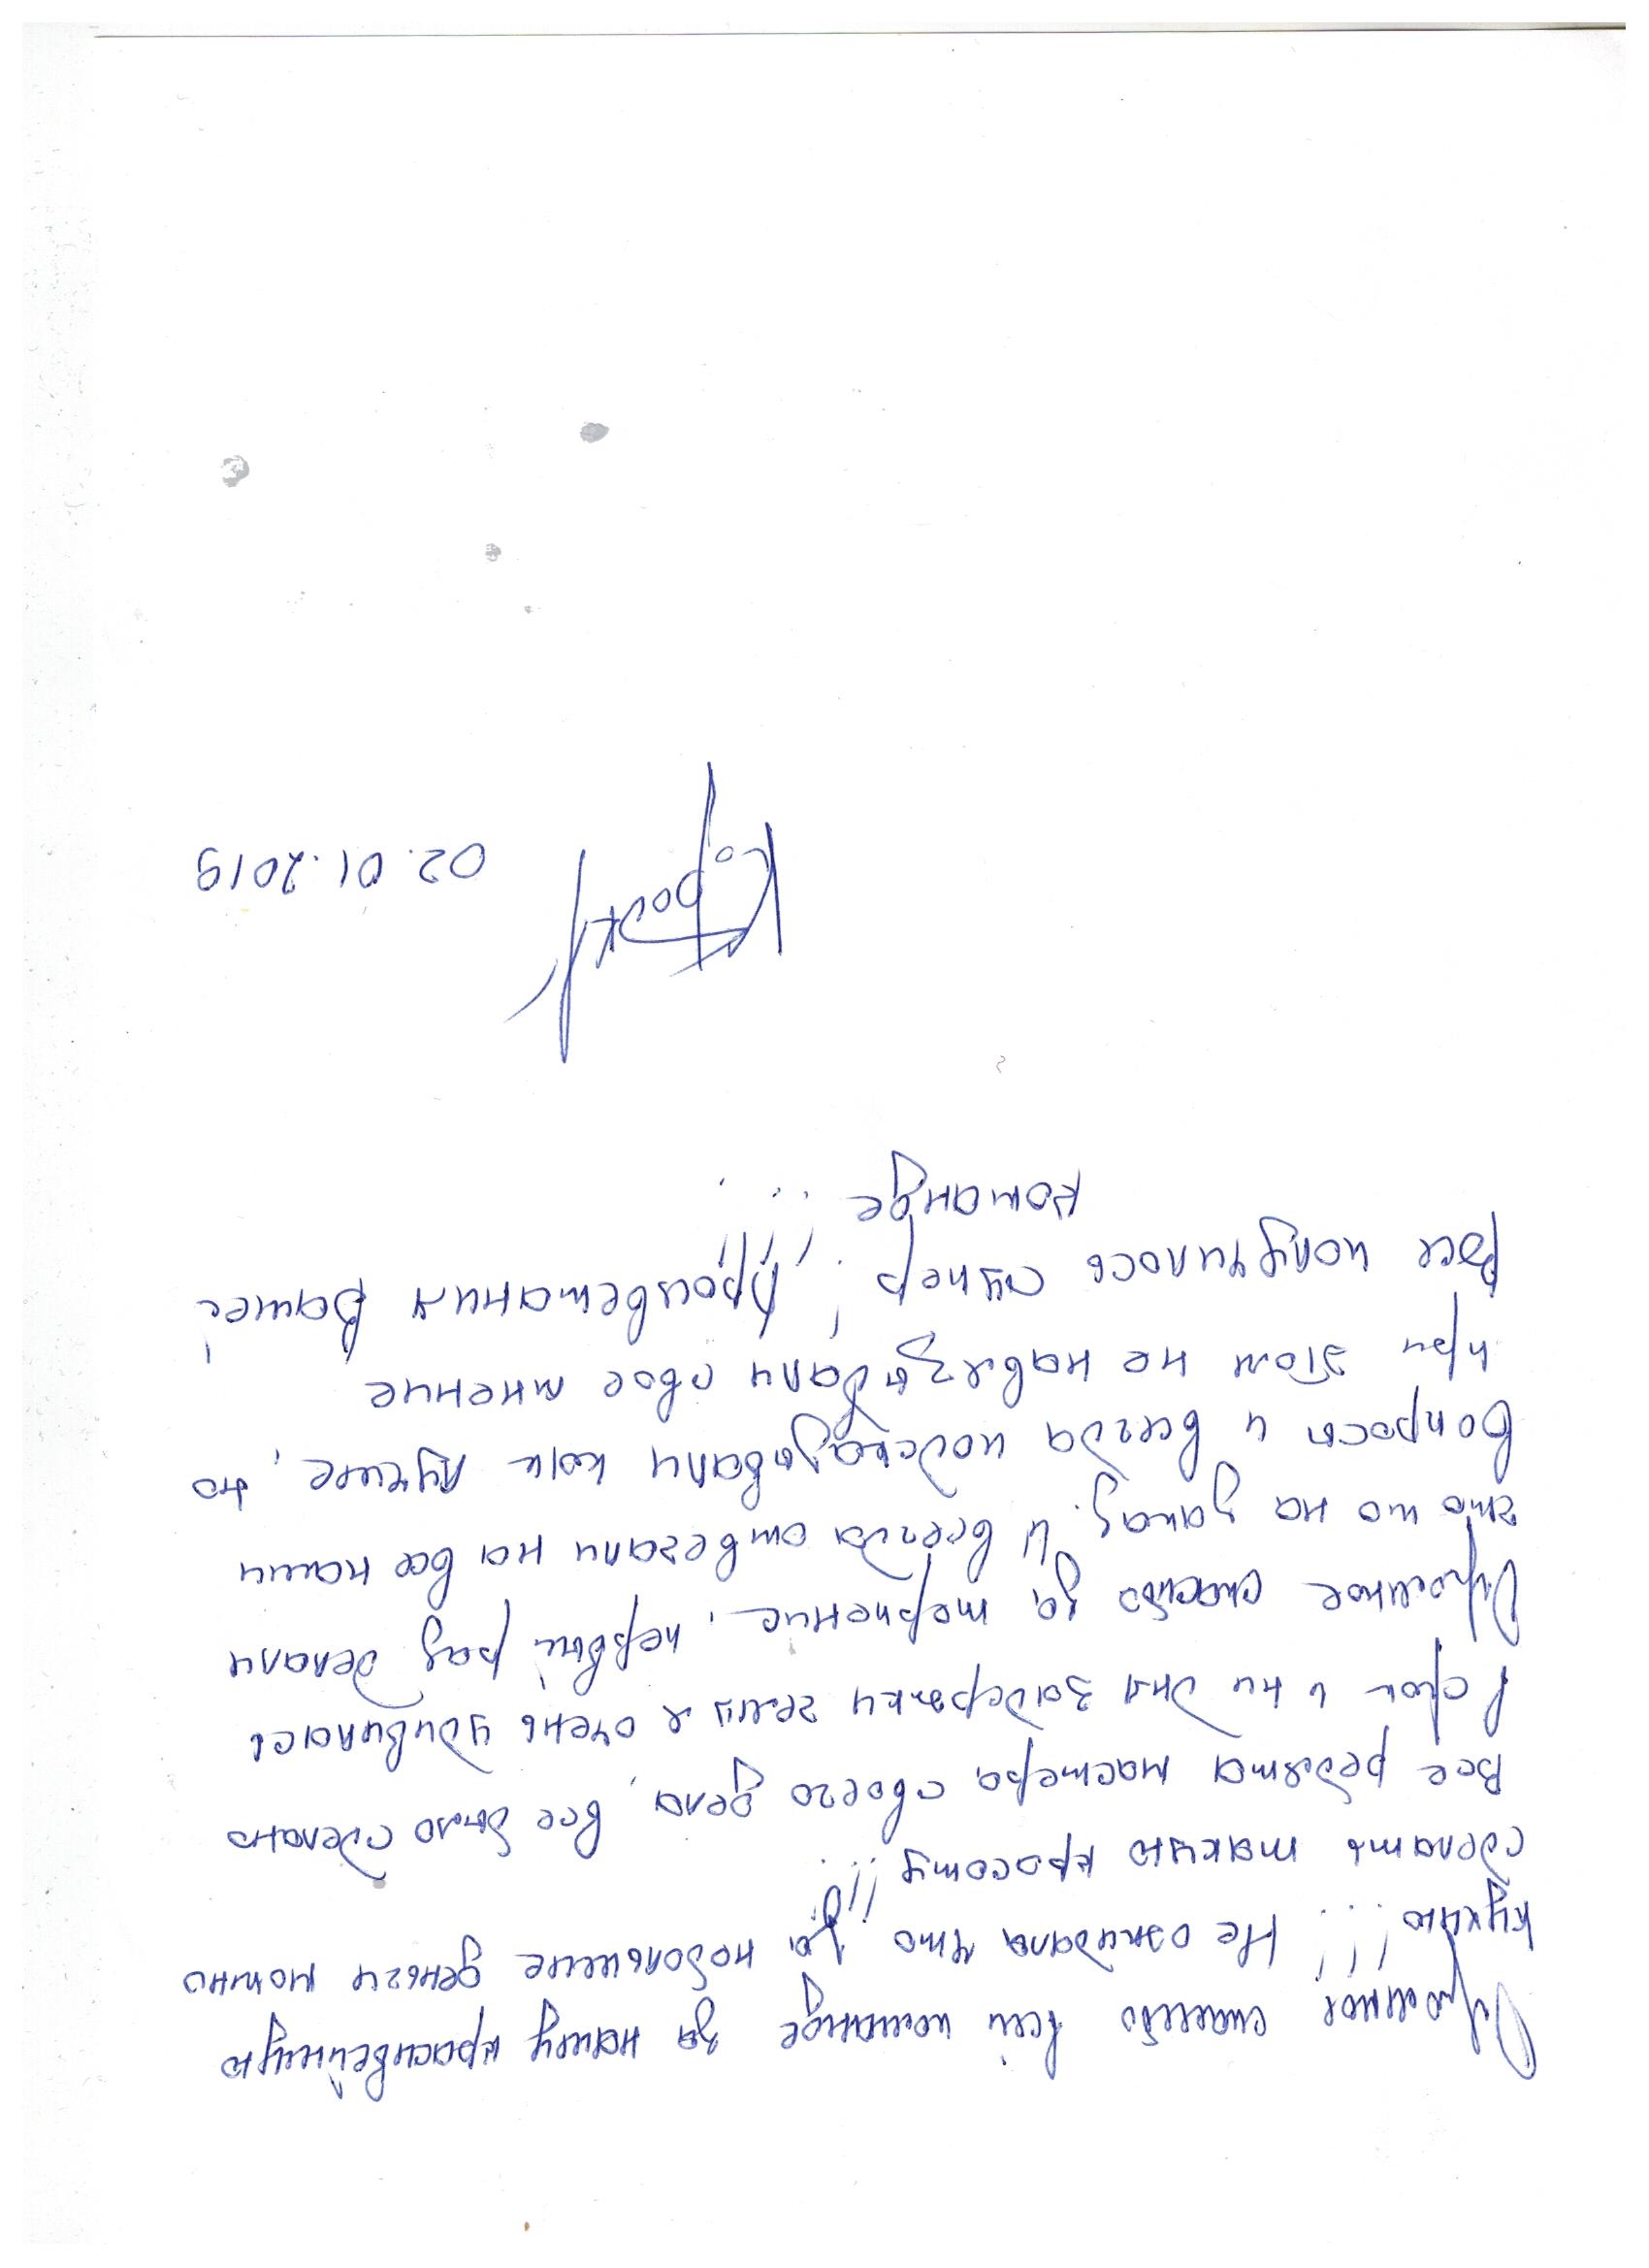 Огромное спасибо всей команде за нашу красивейшую
кухню!!! Не ожидала что за небольшие деньги можно
сделать такую красоту!!!
Все ребята мастера своего дела, все было сделано
в срок и ни дня задержки чему я очень удивилась
Огромное спасибо за терпение, первый раз делали
что то на заказ. И всегда отвечали на все наши
вопросы и всегда подсказывали как лучше, но
при этом не навязывали свое мнение
Все получилось супер! Процветания Вашей
команде!!!
02.01.2019